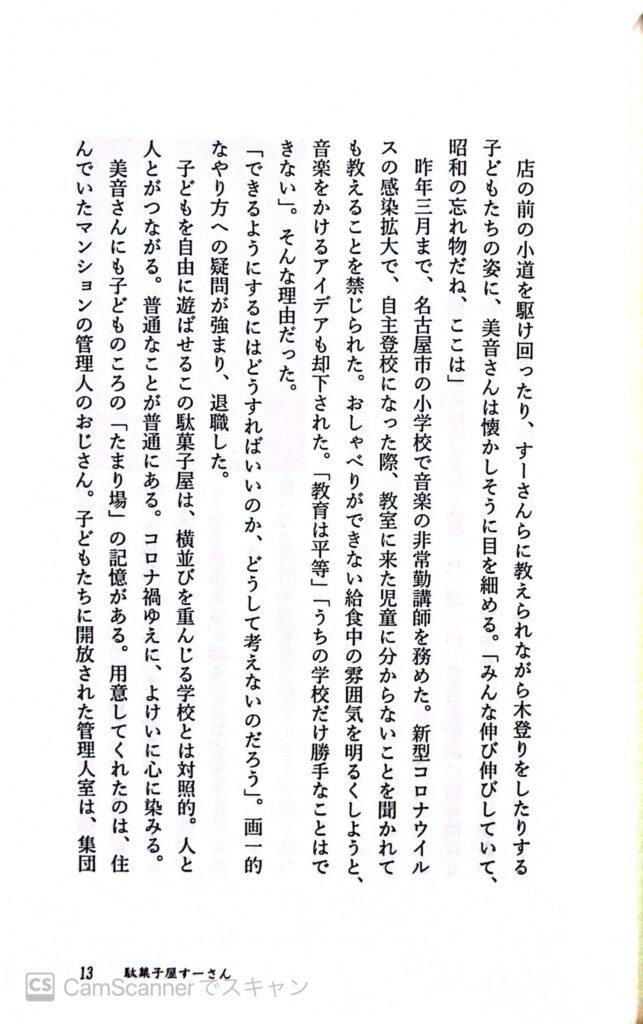 店の前の小道を駆け回ったり、すーさんらに教えられながら木登りをしたりする
子どもたちの姿に、美音さんは懐かしそうに目を細める。「みんな伸び伸びしていて、
昭和の忘れ物だね、ここは」
昨年三月まで、名古屋市の小学校で音楽の非常勤講師を務めた。新型コロナウイル
スの感染拡大で、自主登校になった際、教室に来た児童に分からないことを聞かれて
も教えることを禁じられた。おしゃべりができない給食中の雰囲気を明るくしようと、
音楽をかけるアイデアも却下された。「教育は平等」「うちの学校だけ勝手なことはで
きない」。そんな理由だった。
「できるようにするにはどうすればいいのか、どうして考えないのだろう」。画一的
なやり方への疑問が強まり、退職した。
子どもを自由に遊ばせるこの駄菓子屋は、横並びを重んじる学校とは対照的。人と
人とがつながる。普通なことが普通にある。コロナ禍ゆえに、よけいに心に染みる。
美音さんにも子どものころの「たまり場」の記憶がある。用意してくれたのは、住
んでいたマンションの管理人のおじさん。子どもたちに開放された管理人室は、集団
13 駄菓子屋すーさん
CS CamScannerでスキャン